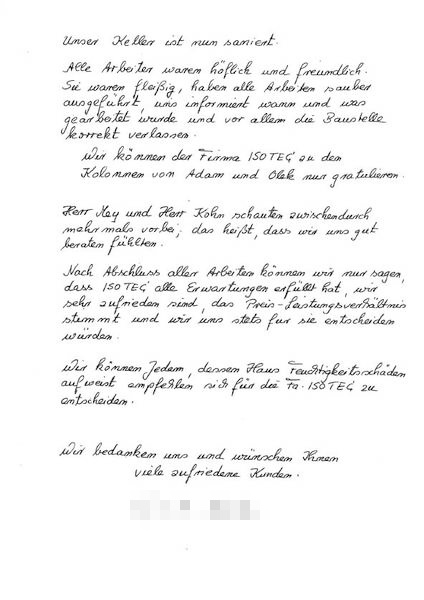 Unser Keller ist nun saniert.
Alle Arbeiter waren höflich und freundlich.
Sie waren fleißig, haben alle Arbeiten sauber
ausgeführt, uns informiert wann und was
gearbeitet wurde und vor allem die Baustelle
korrekt verlassen.
Wir können der Firma ISOTEC zu den
Kolonnen von Adam und Olek nur gratulieren.
Herr Mey und Herr Kohn schauten zwischendurch
mehrmals vorbei, das heißt, dass wir uns gut
beraten fühlten.
Nach Abschluss aller Arbeiten können wir nur sagen,
dass ISOTEC alle Erwartungen erfüllt hat, wir
sehr zufrieden sind, das Preis-Leistungsverhältnis
stimmt und wir uns stets für sie entscheiden
würden.
Wir können Jedem, dessen Haus Feuchtigkeitsschäden
aufweist empfehlen sich für die Fa. ISOTEC zu
entscheiden.
Wir bedanken uns und wünschen Ihnen
viele zufriedene Kunden.